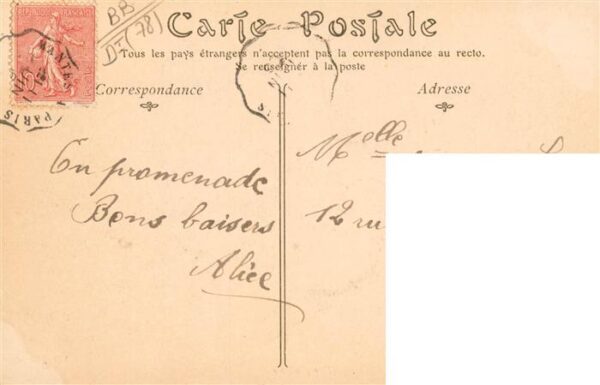 BB
Dt (78)
Carte Postale
Tous les pays étrangers n'acceptent pas la correspondance au recto.
Se renseigner à la poste
Correspondance
Adresse
NANTES
PARIS
Melle
En promenade
Bons baisers
Alice
12 ru